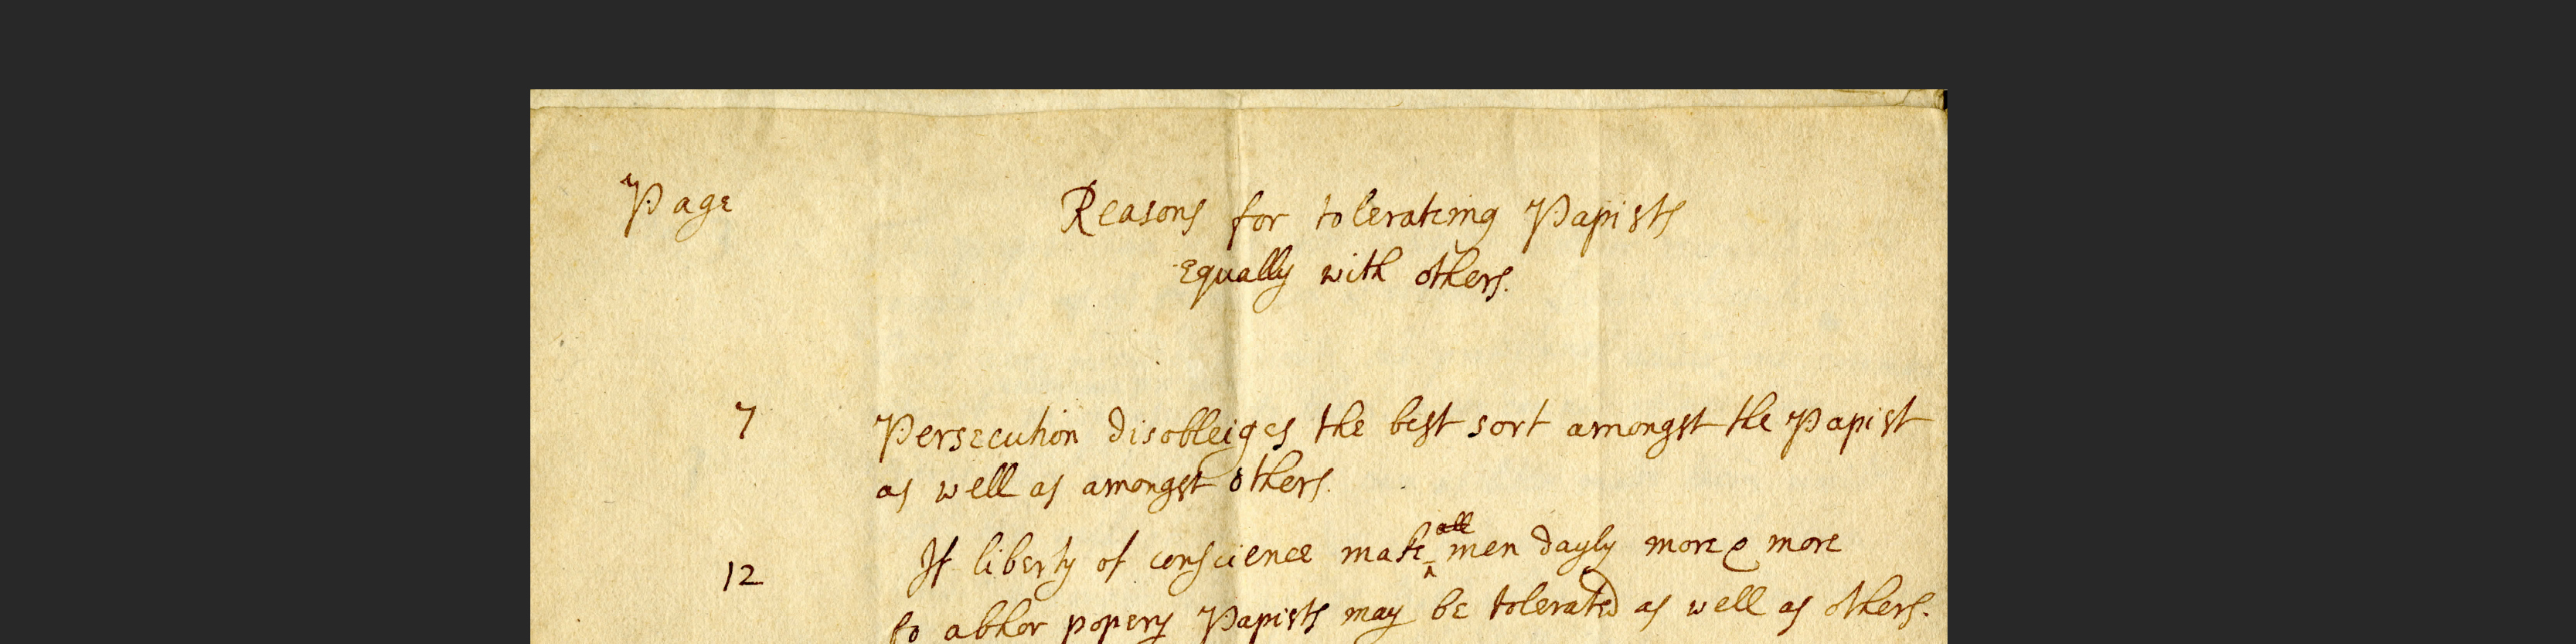 Page
Reasons for tolerateing Papists
equally with others.
7 Persecution disobleiges the best sort amongst the Papist
as well as amongst others.
all
12 If liberty of conscience make men dayly more & more
to abhor popery Papists may be tolerated as well as others.